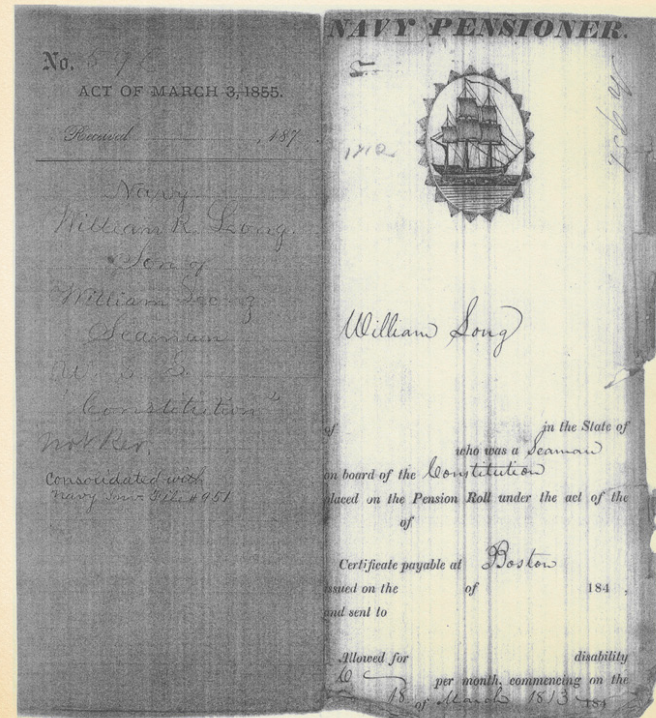 No. 5
ACT OF MARCH 3, 1855.
Received , 187
Navy
William R. Long.
Son of
William Long
Seaman
U. S. S.
"Constitution"
Not Rev.
Consolidated with
Navy Inv. File #951
NAVY PENSIONER.
No 951
1812
William Long
of in the State of
who was a Seaman
on board of the Constitution
placed on the Pension Roll under the act of the
of
Certificate payable at Boston
issued on the of 184 ,
and sent to
Allowed for disability
per month, commencing on the
18 of March 1813 184